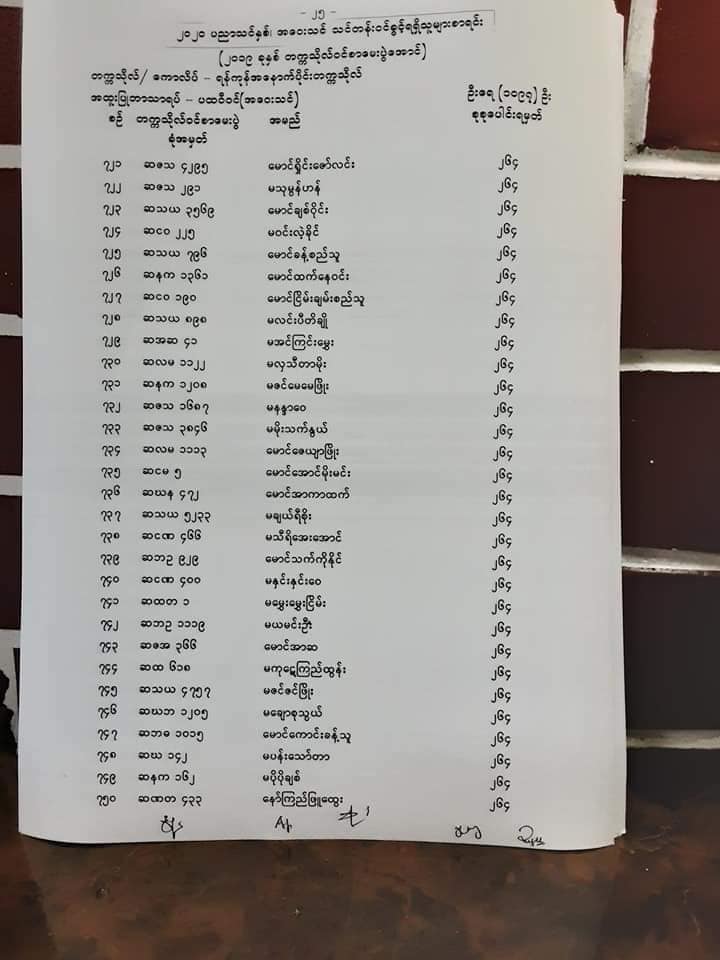 - ၂၅ -
၂၀၂၀ ပညာသင်နှစ်၊ အဝေးသင် သင်တန်းဝင်ခွင့်ရရှိသူများစာရင်း
(၂၀၁၉ ခုနှစ် တက္ကသိုလ်ဝင်စာမေးပွဲအောင်)
တက္ကသိုလ်/ ကောလိပ် - ရန်ကုန်အနောက်ပိုင်းတက္ကသိုလ်
အထူးပြုဘာသာရပ် - ပထဝီဝင်(အဝေးသင်) ဦးရေ (၁၁၉၇) ဦး
စဉ် တက္ကသိုလ်ဝင်စာမေးပွဲ အမည် စုစုပေါင်းရမှတ်
ခုံအမှတ်
၇၂၁ ဆဇသ ၄၂၉၅ မောင်ရှိုင်းဇော်လင်း ၂၆၄
၇၂၂ ဆဇသ ၂၉၁ မသုမွန်ဟန် ၂၆၄
၇၂၃ ဆသယ ၃၅၆၉ မောင်ချစ်ဝိုင်း ၂၆၄
၇၂၄ ဆငဝ ၂၂၅ မဝင်းလဲ့ခိုင် ၂၆၄
၇၂၅ ဆသယ ၇၉၆ မောင်ခန့်စည်သူ ၂၆၄
၇၂၆ ဆနက ၁၃၆၁ မောင်ထက်နေဝင်း ၂၆၄
၇၂၇ ဆငဝ ၁၉၀ မောင်ငြိမ်းချမ်းစည်သူ ၂၆၄
၇၂၈ ဆသယ ၈၉၈ မလင်းပီတိချို ၂၆၄
၇၂၉ ဆအဆ ၄၁ မအင်ကြင်းမွှေး ၂၆၄
၇၃၀ ဆလမ ၁၁၂၂ မလှသီတာမိုး ၂၆၄
၇၃၁ ဆနက ၁၂၀၈ မဇင်မေမေဖြိုး ၂၆၄
၇၃၂ ဆဇသ ၁၆၈၇ မနန္ဒာဝေ ၂၆၄
၇၃၃ ဆဇသ ၃၈၄၆ မမိုးသက်နွယ် ၂၆၄
၇၃၄ ဆလမ ၁၁၁၃ မောင်ဇေယျာဖြိုး ၂၆၄
၇၃၅ ဆငမ ၅ မောင်အောင်မိုးမင်း ၂၆၄
၇၃၆ ဆဃန ၄၇၂ မောင်အာကာထက် ၂၆၄
၇၃၇ ဆသယ ၅၂၃၃ မချယ်ရီစိုး ၂၆၄
၇၃၈ ဆငဏ ၄၆၆ မသီရိအေးအောင် ၂၆၄
၇၃၉ ဆဘဥ ၉၂၉ မောင်သက်ကိုနိုင် ၂၆၄
၇၄၀ ဆငဏ ၄၀၀ မနှင်းနှင်းဝေ ၂၆၄
၇၄၁ ဆထတ ၁ မမွှေးမွှေးငြိမ်း ၂၆၄
၇၄၂ ဆဘဥ ၁၁၁၉ မယမင်းဦး ၂၆၄
၇၄၃ ဆဇအ ၃၆၆ မောင်အာဆ ၂၆၄
၇၄၄ ဆထ ၆၁၈ မကုဋေကြည်ထွန်း ၂၆၄
၇၄၅ ဆသယ ၄၇၅၇ မဇင်ဇင်ဖြိုး ၂၆၄
၇၄၆ ဆဃဘ ၁၂၀၅ မချောစုသွယ် ၂၆၄
၇၄၇ ဆဘခ ၁၀၁၅ မောင်ကောင်းခန့်သူ ၂၆၄
၇၄၈ ဆဃ ၁၄၂ မပန်းသော်တာ ၂၆၄
၇၄၉ ဆနက ၁၆၂ မပိုပိုချစ် ၂၆၄
၇၅၀ ဆဏတ ၄၃၃ နော်ကြည်ဖြူထွေး ၂၆၄